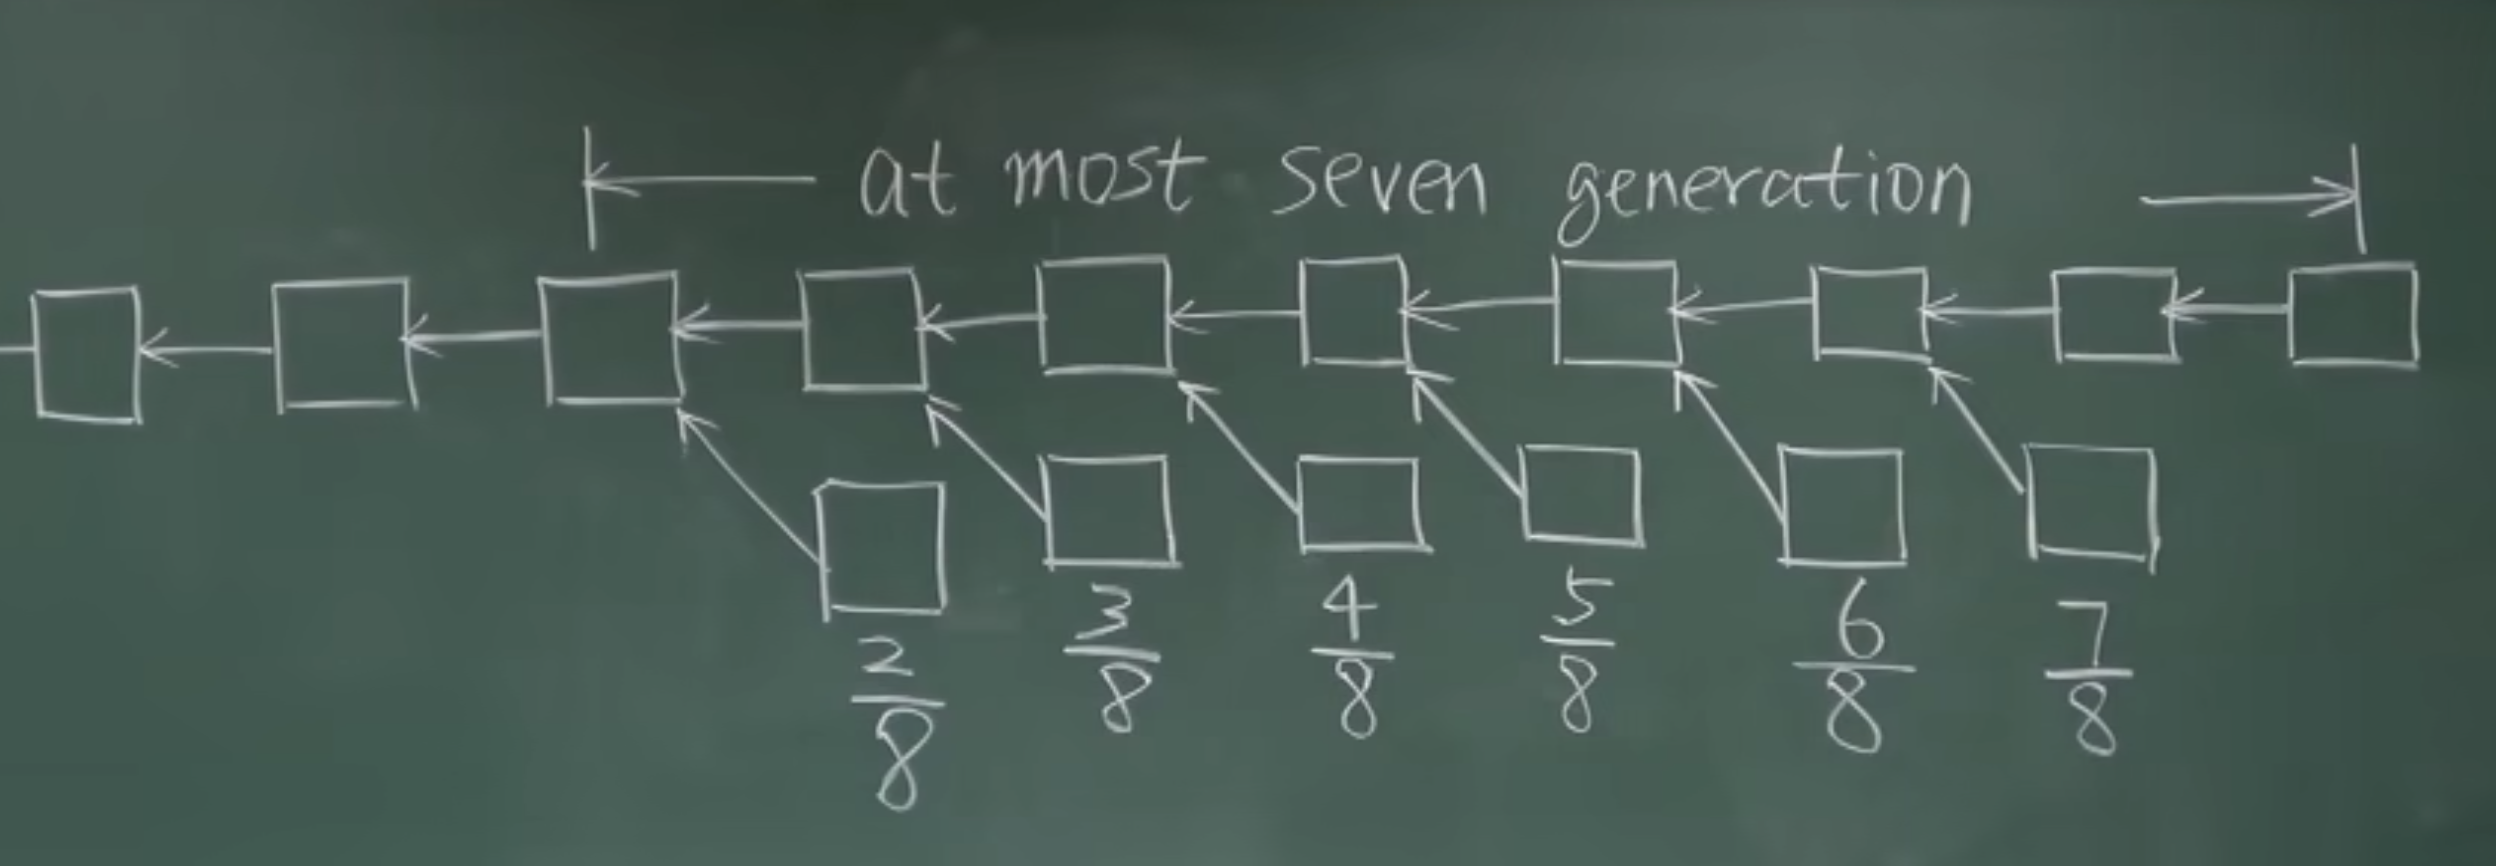 at most seven generation
2/8
3/8
4/8
5/8
6/8
7/8